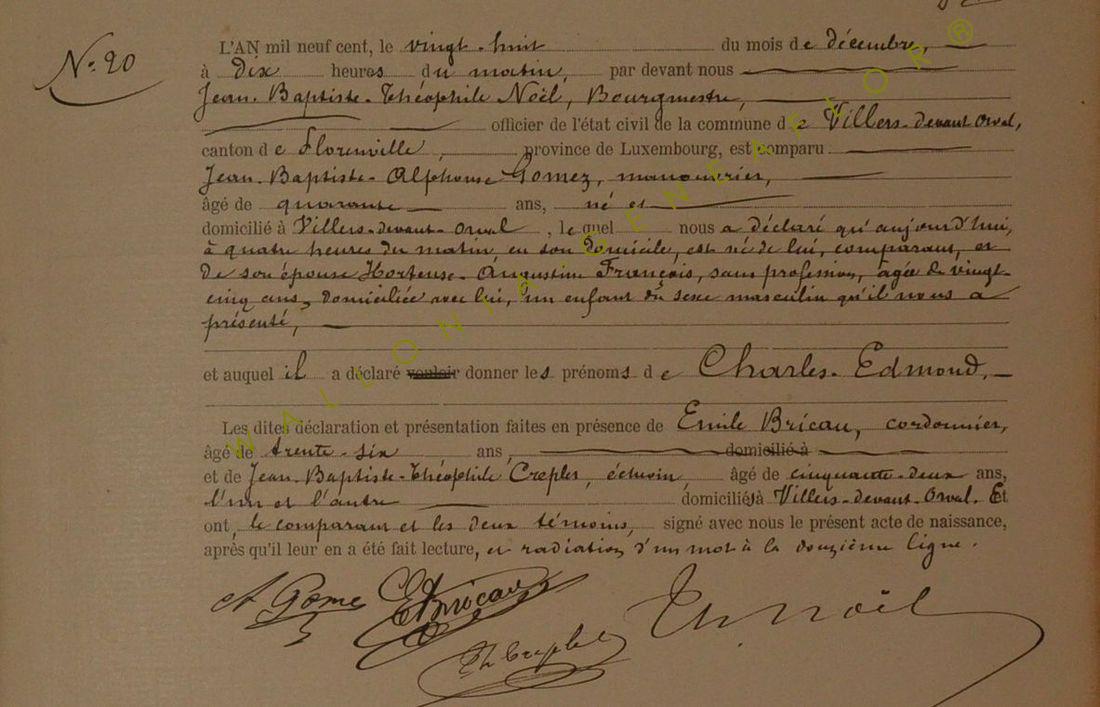 N° 20
L'AN mil neuf cent, le vingt-huit du mois de décembre,
à dix heures du matin, par devant nous
Jean-Baptiste-Théophile Noël, Bourgmestre,
officier de l'état civil de la commune de Villers-devant-Orval,
canton de Florenville, province de Luxembourg, est comparu
Jean-Baptiste-Alphonse Gomez, manouvrier,
âgé de quarante ans, né et
domicilié à Villers-devant-Orval, lequel nous a déclaré qu'aujourd'hui,
à quatre heures du matin, en son domicile, est né de lui, comparant, et
de son épouse Hortense-Augustine François, sans profession, âgée de vingt-
cinq ans, domiciliée avec lui, un enfant du sexe masculin qu'il nous a
présenté,
et auquel il a déclaré vouloir donner les prénoms de Charles-Edmond.
Les dites déclaration et présentation faites en présence de Emile Bricau, cordonnier,
âgé de trente-six ans, domicilié à
et de Jean-Baptiste-Théophile Crepler, échevin, âgé de cinquante-deux ans,
l'un et l'autre domiciliés à Villers-devant-Orval. Et
ont, le comparant et les deux témoins, signé avec nous le présent acte de naissance,
après qu'il leur en a été fait lecture, et radiation d'un mot à la douzième ligne.
A Gomez EBricau
Th Crepler Th Noël
WALLONIA GENEALOR ®